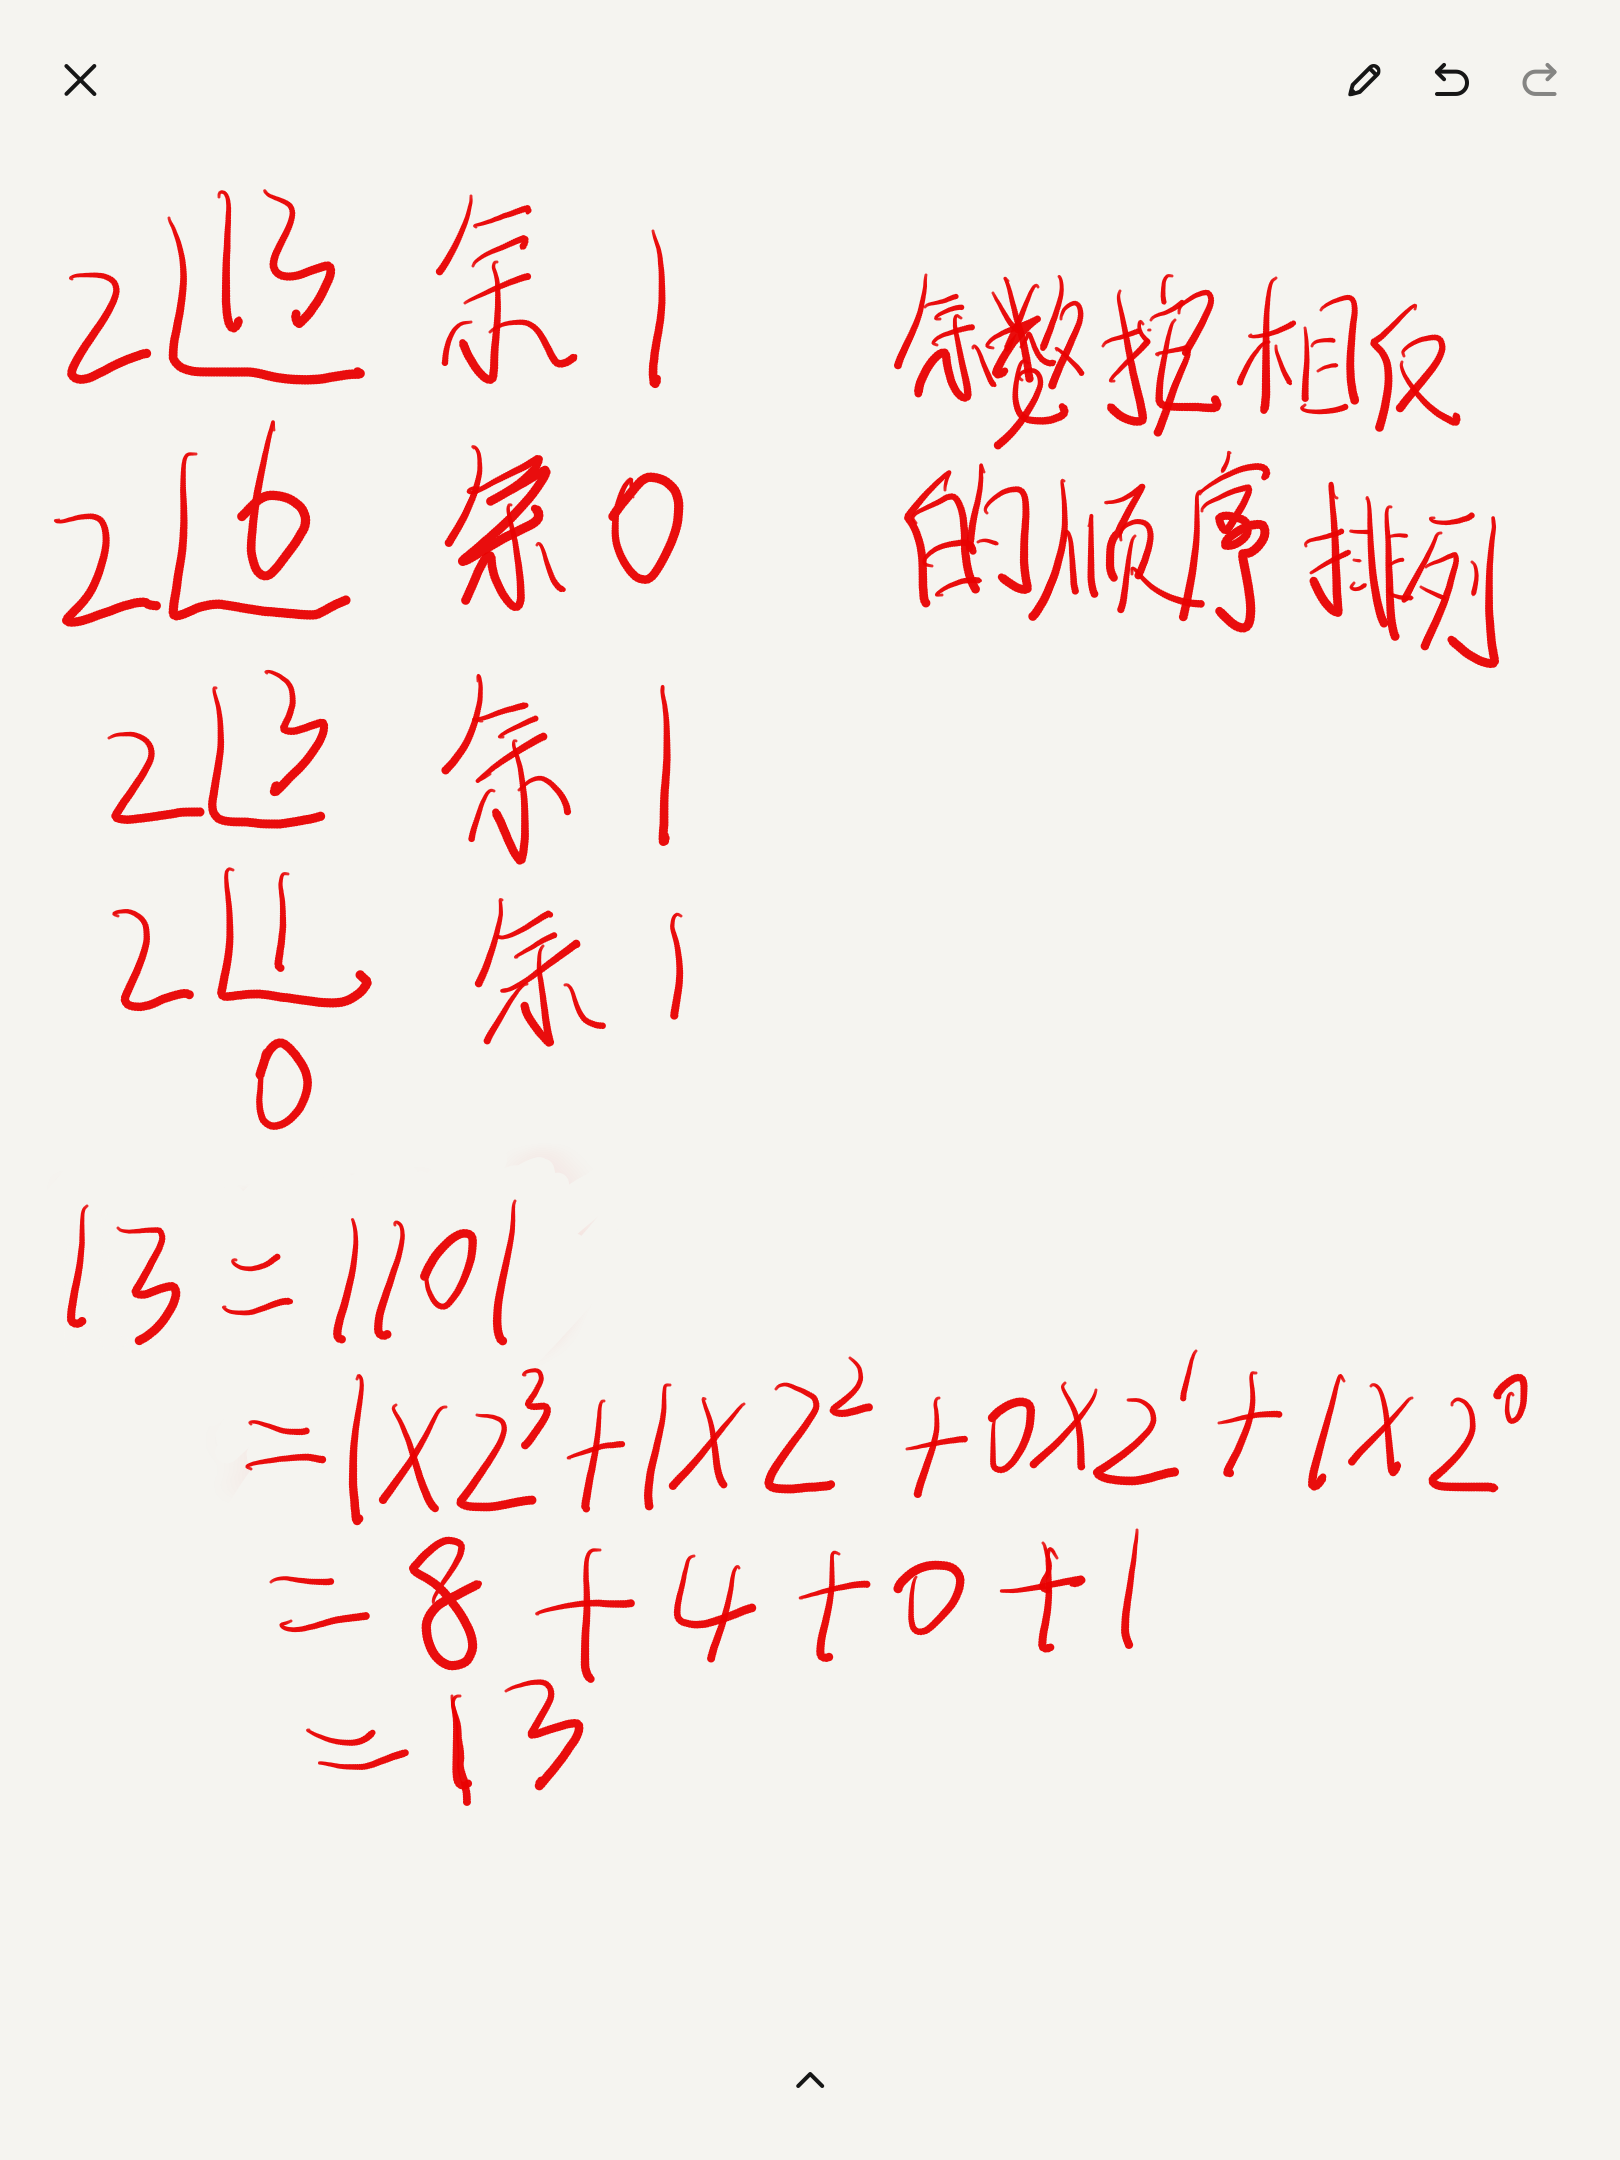 2 13 余 1
2 6 余 0
2 3 余 1
2 1 余 1
0
余数按相反
的顺序排列
13=1101
=1×2³+1×2²+0×2¹+1×2⁰
=8+4+0+1
=13